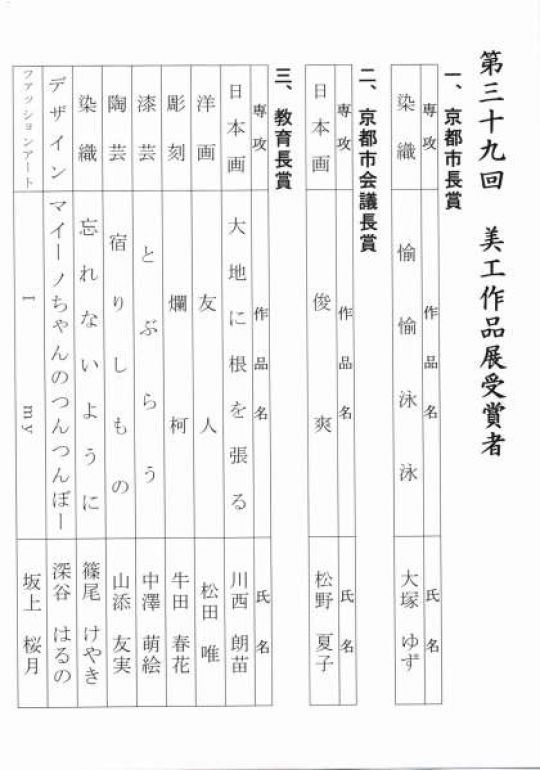 第三十九回　美工作品展受賞者
一、京都市長賞
専攻　作品名　氏名
染織　愉愉泳泳　大塚 ゆず
二、京都市会議長賞
専攻　作品名　氏名
日本画　俊爽　松野 夏子
三、教育長賞
専攻　作品名　氏名
日本画　大地に根を張る　川西 朗苗
洋画　友人　松田 唯
彫刻　爛柯　牛田 春花
漆芸　とぶらう　中澤 萌絵
陶芸　宿りしもの　山添 友実
染織　忘れないように　篠尾 けやき
デザイン　マイーノちゃんのつんつんぼー　深谷 はるの
ファッションアート　I my　坂上 桜月